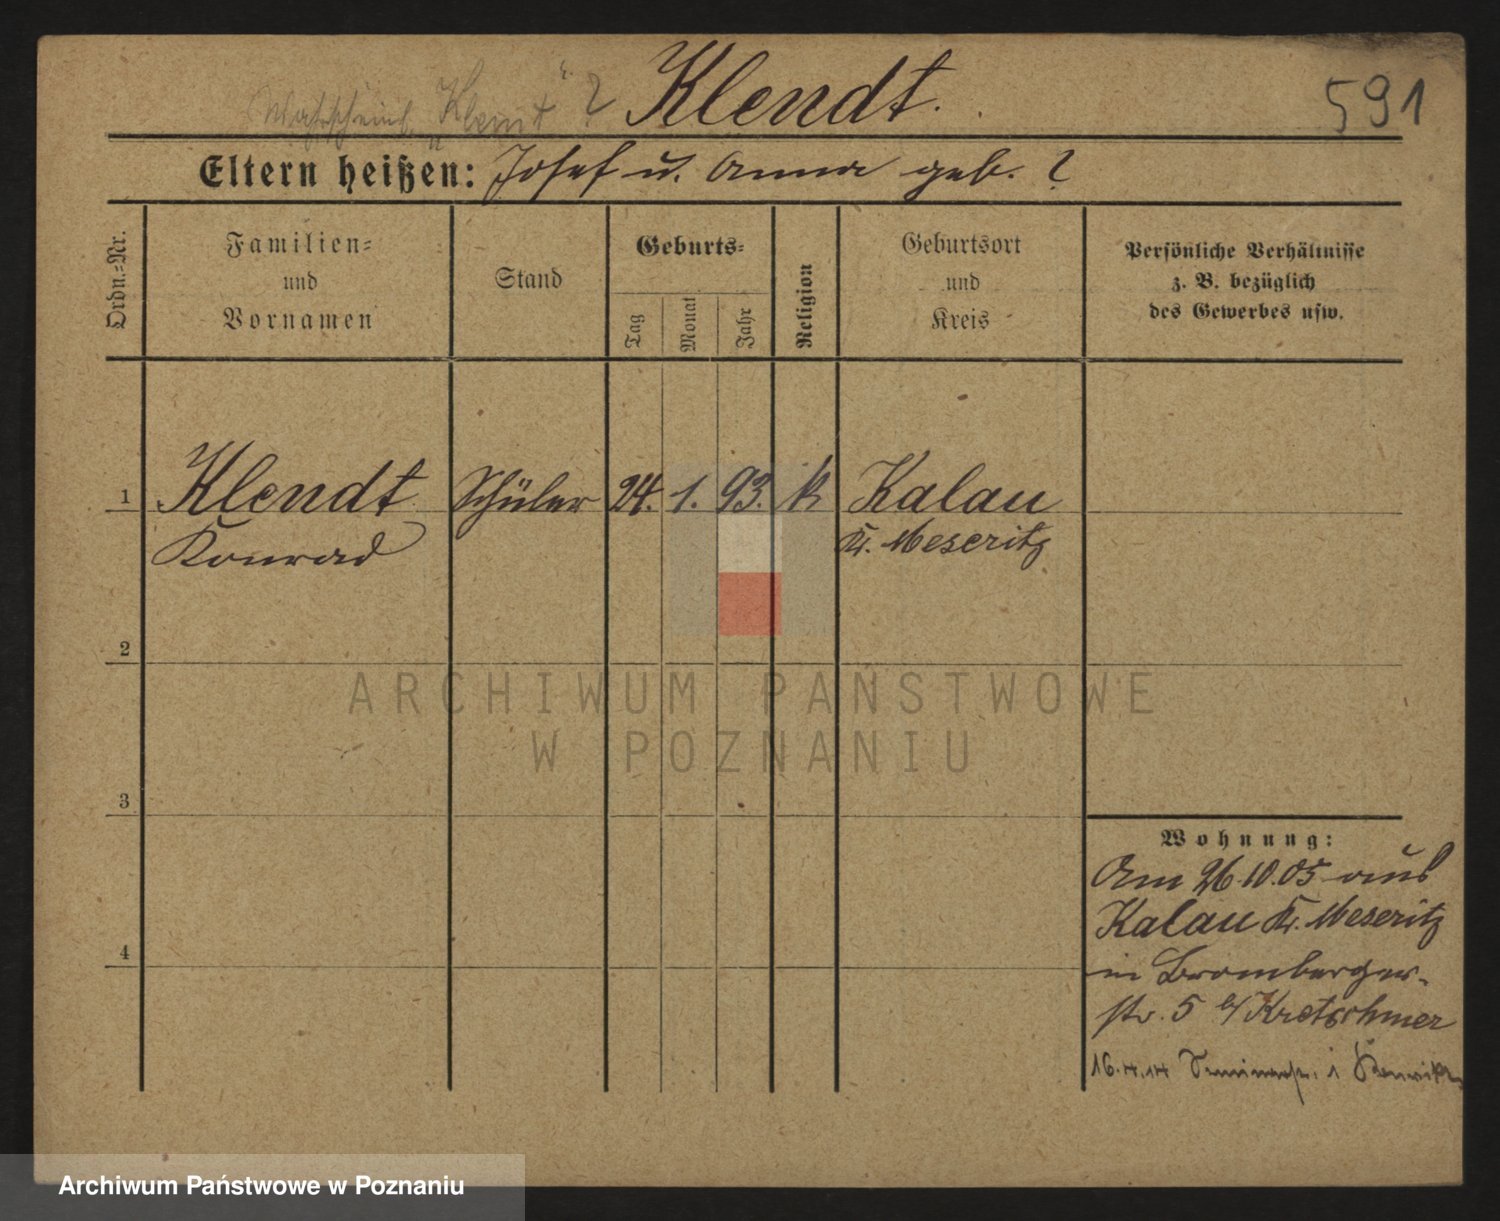 Wahrscheinl. „Klemt“ ? Klendt. 591
Eltern heißen: Josef u. Anna geb. ?
Ordn.=Nr.
Familien=
und
Vornamen
Stand
Geburts=
Tag
Monat
Jahr
Religion
Geburtsort
und
Kreis
Persönliche Verhältnisse
z. B. bezüglich
des Gewerbes usw.
1 Klendt Schüler 24. 1. 93. k Kalau
Konrad Kr. Meseritz
2
ARCHIWUM PAŃSTWOWE
W POZNANIU
3
Wohnung:
Am 26.10.05 aus
Kalau Kr. Meseritz
4
in Bromberger-
str. 5 b/ Kretschmer
16.4.14
Archiwum Państwowe w Poznaniu